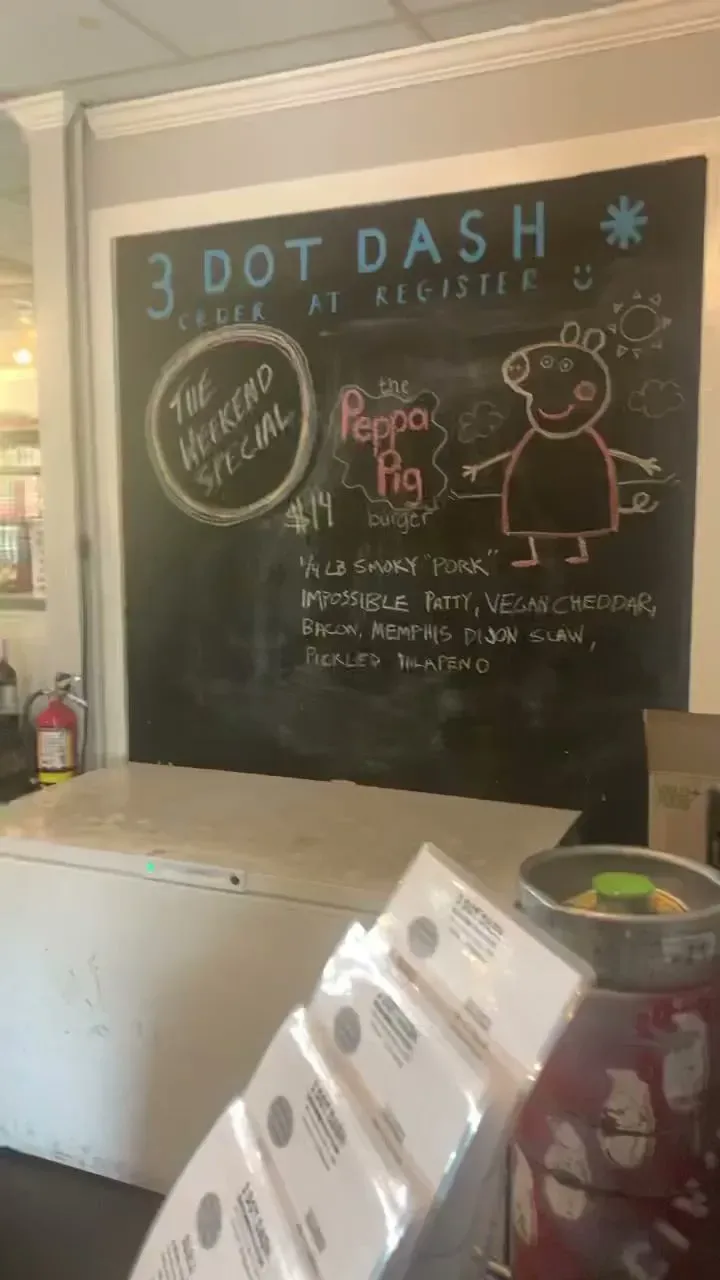 3 DOT DASH
ORDER AT REGISTER
THE
WEEKEND
SPECIAL
the
Peppa
Pig
burger
$14
1/4 LB SMOKY "PORK"
IMPOSSIBLE PATTY, VEGAN CHEDDAR,
BACON, MEMPHIS DIJON SLAW,
PICKLED JALAPENO
3 DOT DASH